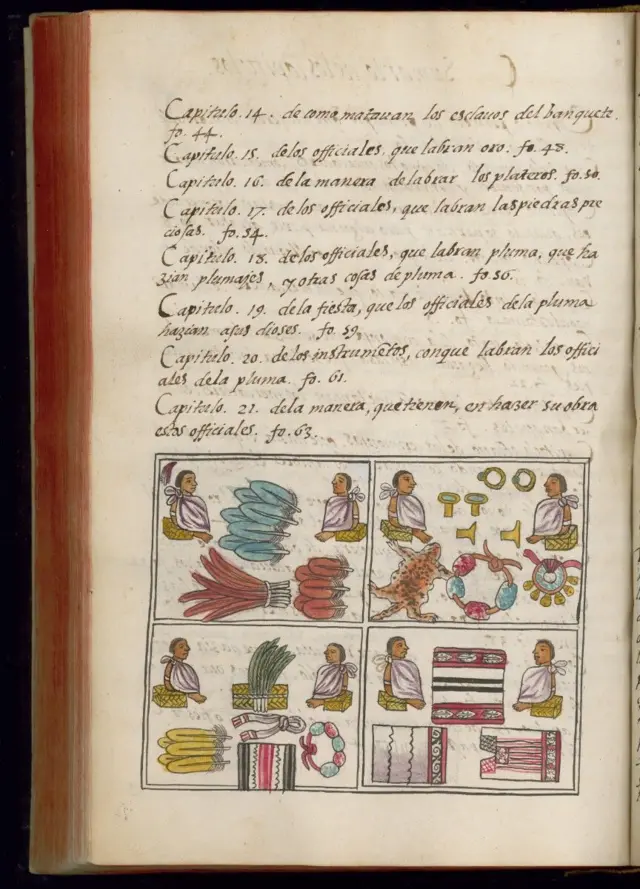 Capitulo. 14. de como matauan los esclauos del banquete.
fo. 44.
Capitulo. 15. delos officiales, que labran oro. fo. 48.
Capitulo. 16. de la manera de labrar los plateros. fo. 50.
Capitulo. 17. de los officiales, que labran las piedras pre
ciosas. fo. 54.
Capitulo. 18. de los officiales, que labran pluma, que ha
zian plumajes, y otras cosas de pluma. fo. 56.
Capitulo. 19. de la fiesta, que los officiales de la pluma
hazian a sus dioses. fo. 59.
Capitulo. 20. de los instrumẽtos, con que labran los offici
ales de la pluma. fo. 61.
Capitulo. 21. de la manera, que tienen, en hazer su obra
estos officiales. fo. 63.